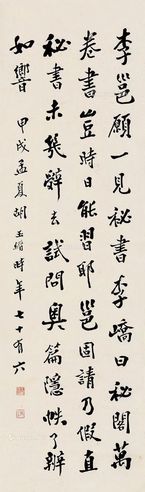 李邕願一見秘書李嶠曰秘閣萬
卷書豈時日能習耶邕固請乃假直
秘書未幾辭去試問奧篇隱帙了辨
如響
甲戌孟夏胡玉縉時年七十有六